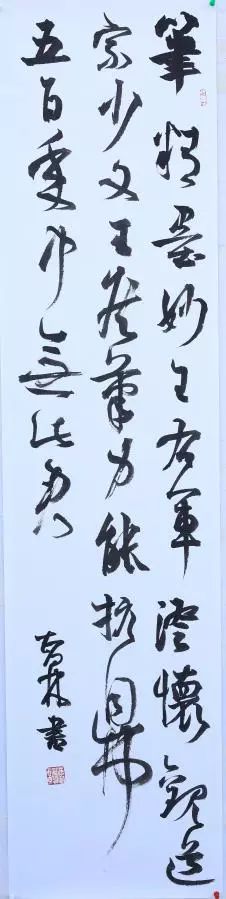 筆精墨妙王右軍澄懷觀道
宗少文王侯筆力能扛鼎
五百年中無此君
書